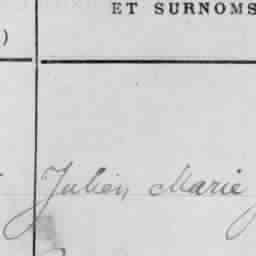 ET SURNOMS
)
Julien Marie